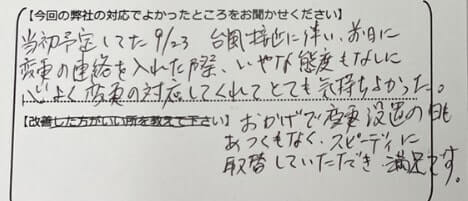 【今回の弊社の対応でよかったところをお聞かせください】
当初予定してた9/23 台風接近に伴い、前日に
変更の連絡を入れた際、いやな態度もなしに
心よく変更の対応してくれてとても気持ちよかった。
【改善した方がいい所を教えて下さい】
おかげで変更設置の日も
あつくもなく、スピーディに
取替していただき、満足です。